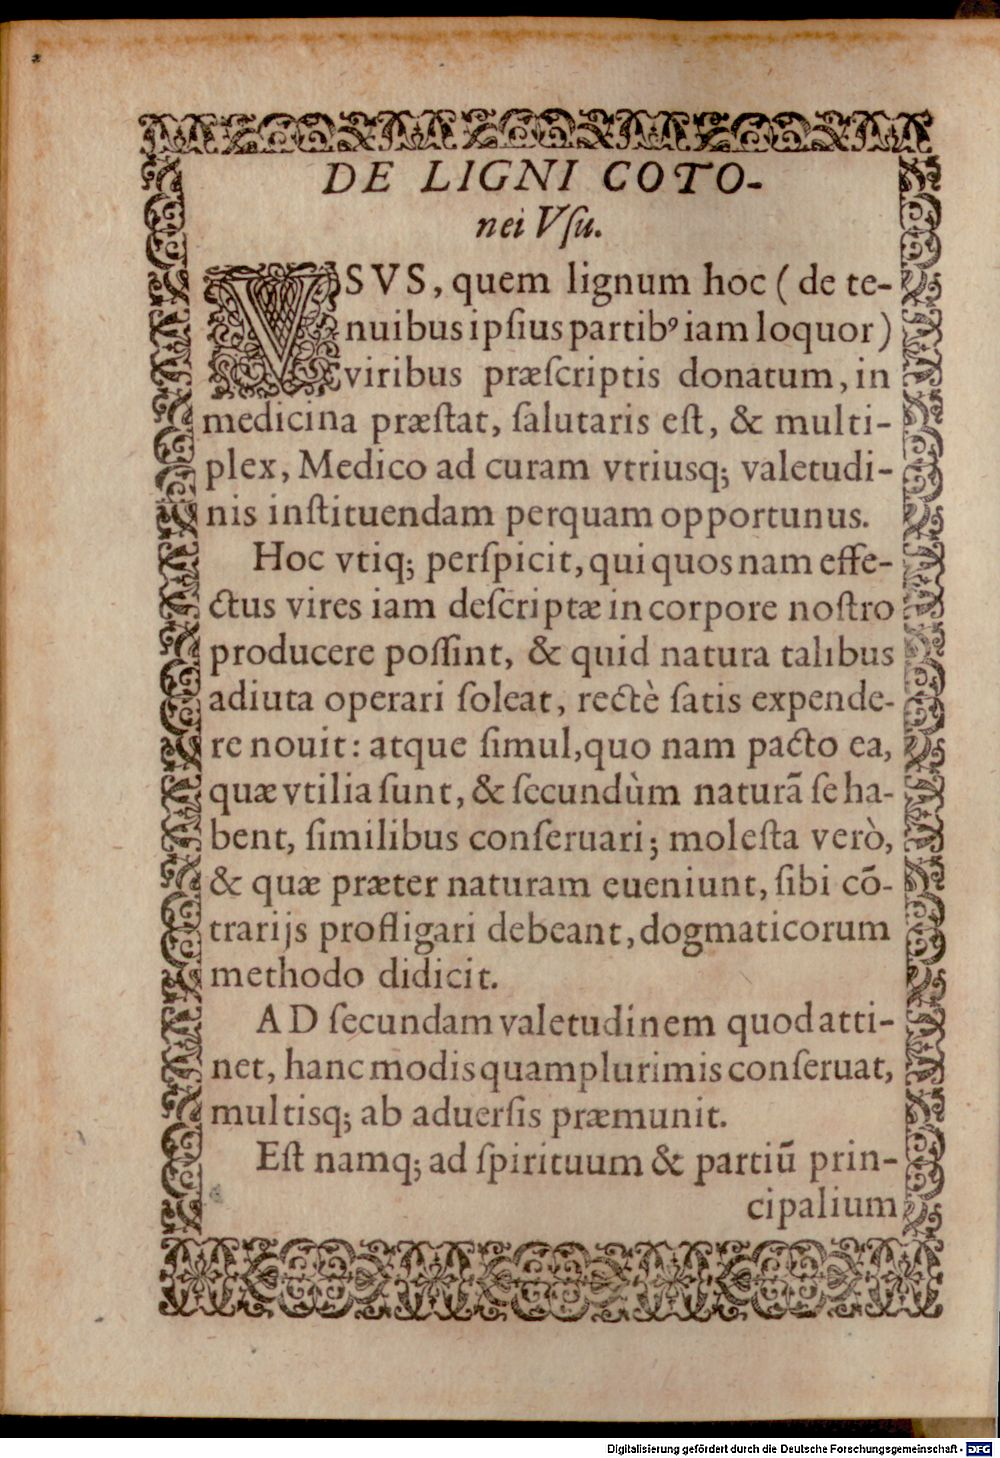 DE LIGNI COTO-
nei Vſu.
VSVS, quem lignum hoc ( de te-
nuibus ipſius partibꝰ iam loquor )
viribus præſcriptis donatum, in
medicina præſtat, ſalutaris eſt, & multi-
plex, Medico ad curam vtriusq; valetudi-
nis inſtituendam perquam opportunus.
Hoc vtiq; perſpicit, qui quos nam effe-
ctus vires iam deſcriptæ in corpore noſtro
producere poſſint, & quid natura talibus
adiuta operari ſoleat, rectè ſatis expende-
re nouit: atque ſimul, quo nam pacto ea,
quæ vtilia ſunt, & ſecundùm naturã ſe ha-
bent, ſimilibus conſeruari; moleſta verò,
& quæ præter naturam eueniunt, ſibi cõ-
trarijs profligari debeant, dogmaticorum
methodo didicit.
AD ſecundam valetudinem quod atti-
net, hanc modis quamplurimis conſeruat,
multisq; ab aduerſis præmunit.
Eſt namq; ad ſpirituum & partiũ prin-
cipalium
Digitalisierung gefördert durch die Deutsche Forschungsgemeinschaft - DFG